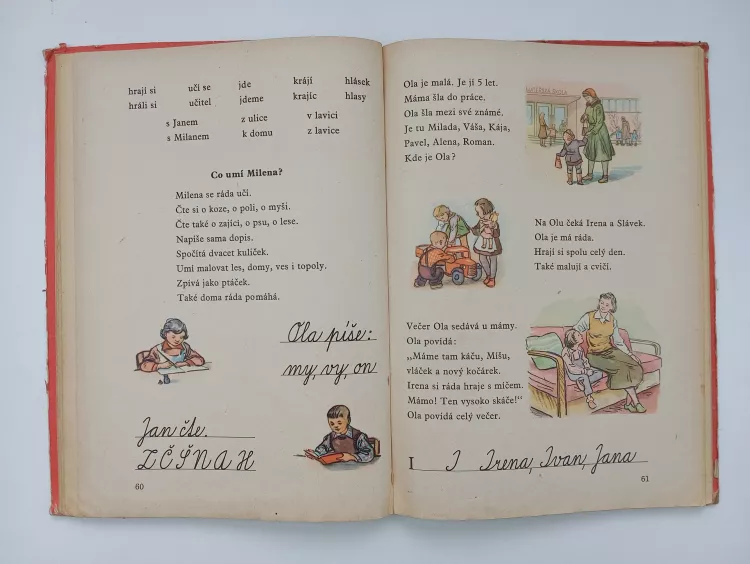 hrají si učí se jde krájí hlásek
hráli si učitel jdeme krajíc hlasy
s Janem z ulice v lavici
s Milanem k domu z lavice
Co umí Milena?
Milena se ráda učí.
Čte si o koze, o poli, o myši.
Čte také o zajíci, o psu, o lese.
Napíše sama dopis.
Spočítá dvacet kuliček.
Umí malovat les, domy, ves i topoly.
Zpívá jako ptáček.
Také doma ráda pomáhá.
Ola píše:
my, vy, on
Jan čte.
Z Č Š N A H
60
Ola je malá. Je jí 5 let.
Máma šla do práce.
Ola šla mezi své známé.
Je tu Milada, Váša, Kája,
Pavel, Alena, Roman.
Kde je Ola?
Na Olu čeká Irena a Slávek.
Ola je má ráda.
Hrají si spolu celý den.
Také malují a cvičí.
Večer Ola sedává u mámy.
Ola povídá:
„Máme tam káču, Míšu,
vláček a nový kočárek.
Irena si ráda hraje s míčem.
Mámo! Ten vysoko skáče!“
Ola povídá celý večer.
I I Irena, Ivan, Jana
61